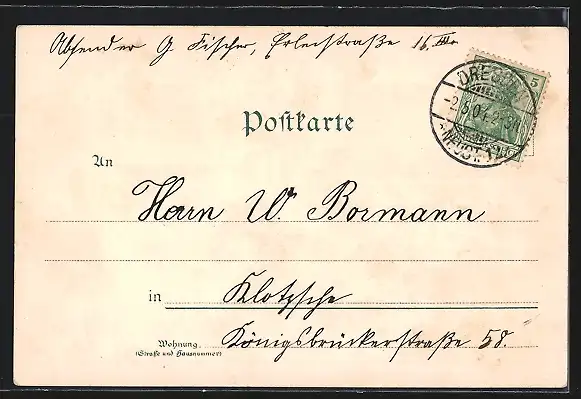 Absender G. Fischer, Erlenstraße 16 III.
DRESDEN
5
-2.3.04. 2-3N
NEUST. 1
Postkarte
An
Herrn W. Bormann
in Klotzsche
Wohnung Königsbrückerstraße 58.
(Straße und Hausnummer)